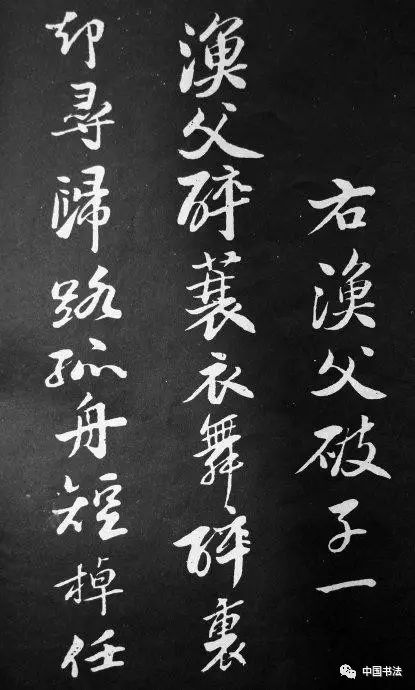 右漁父破子一
漁父醉蓑衣舞醉裏
却尋歸路孤舟短棹任
中国书法